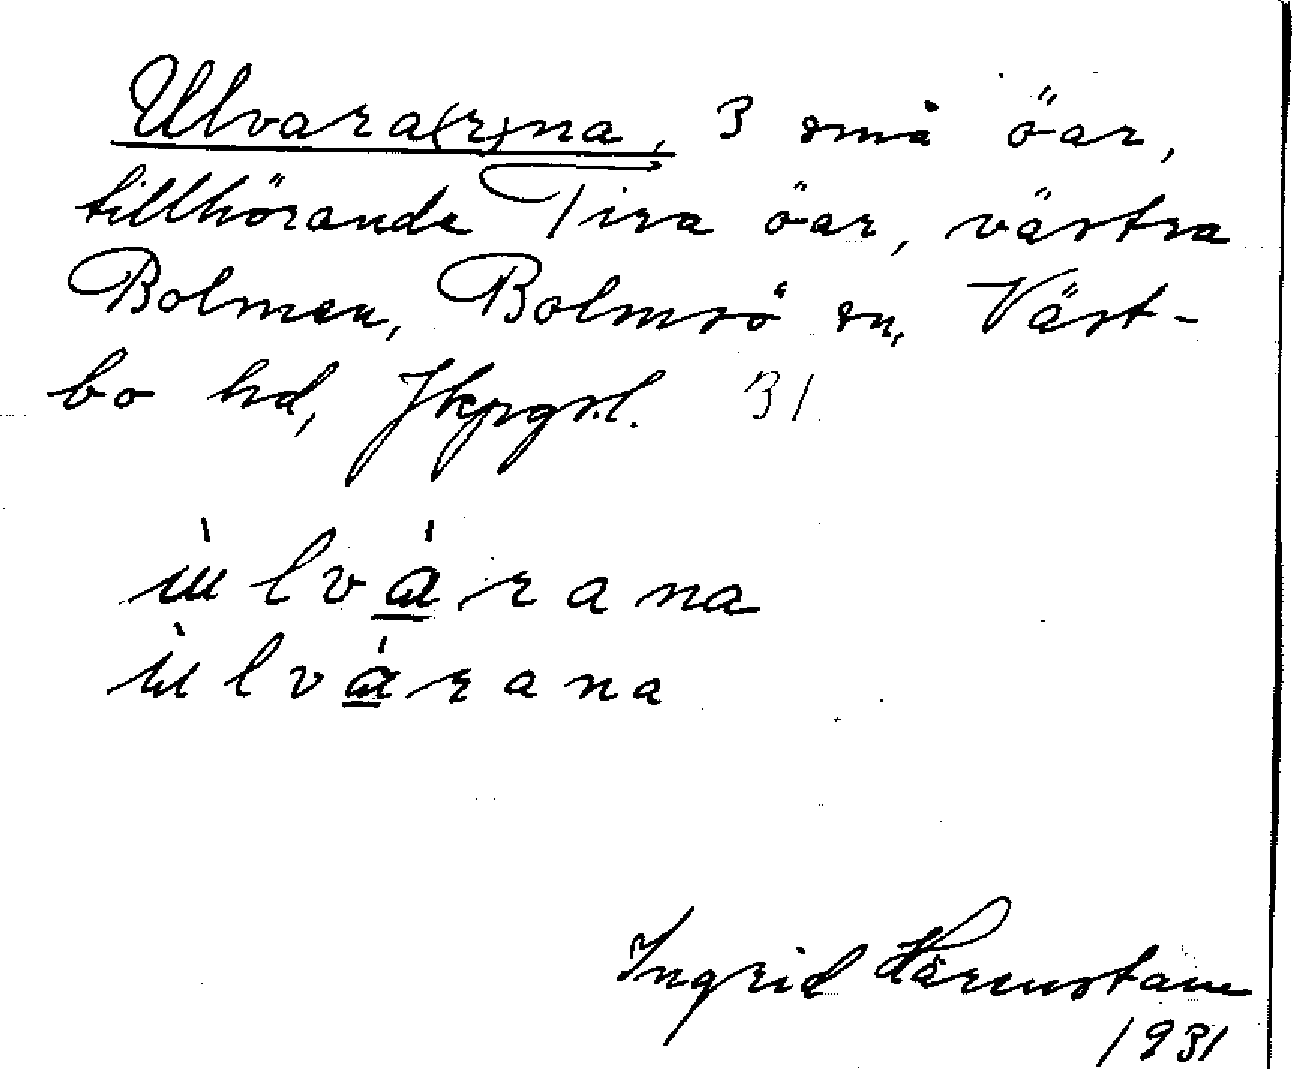 Ulvara(r)na, 3 små öar,
tillhörande Tira öar, västra
Bolmen, Bolmsö sn, Väst-
bo hd, Jkpgs.l. 31
ùlvárana
ùlvárana
Ingrid Härenstam
1931